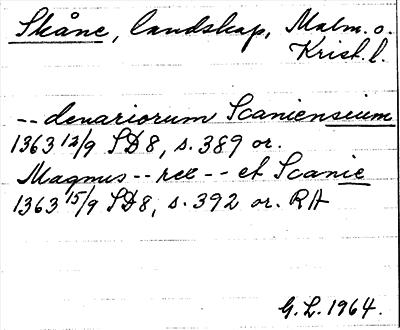 Skåne, landskap, Malm. o.
Krist. l.
-- denariorum Scaniensium
1363 12/9 SD8, s. 389 or.
Magnus -- rex -- et Scanie
1363 15/9 SD8, s. 392 or. RA
G. L. 1964.